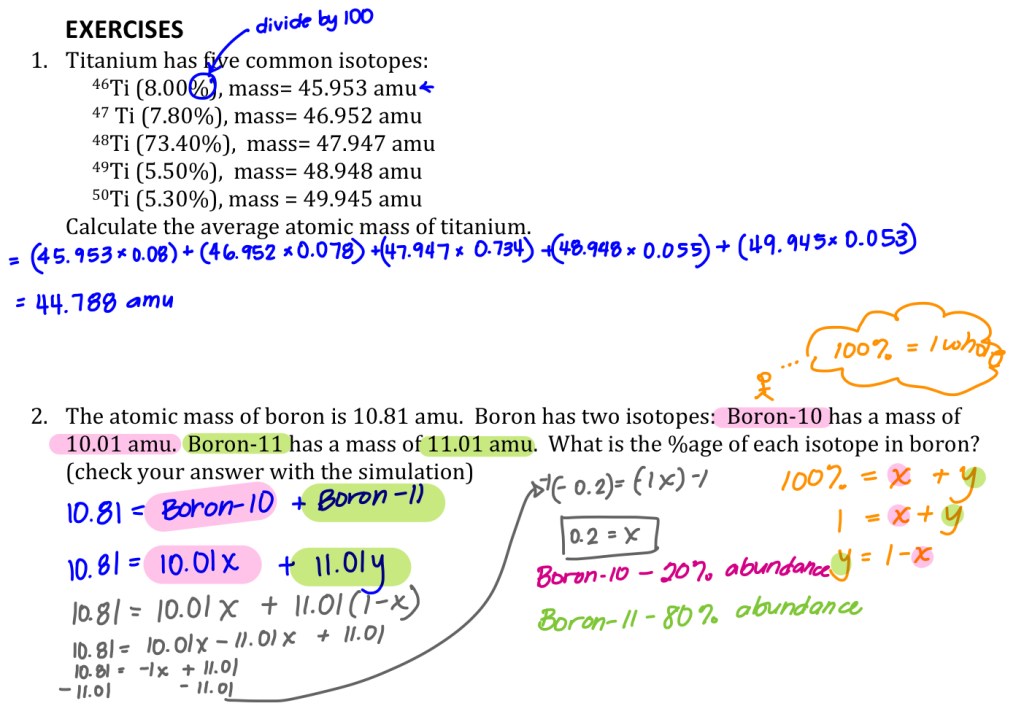 EXERCISES
divide by 100
1. Titanium has five common isotopes:
⁴⁶Ti (8.00%), mass= 45.953 amu ←
⁴⁷ Ti (7.80%), mass= 46.952 amu
⁴⁸Ti (73.40%), mass= 47.947 amu
⁴⁹Ti (5.50%), mass= 48.948 amu
⁵⁰Ti (5.30%), mass = 49.945 amu
Calculate the average atomic mass of titanium.
= (45.953 × 0.08) + (46.952 × 0.078) + (47.947 × 0.734) + (48.948 × 0.055) + (49.945 × 0.053)
= 44.788 amu
... 100% = 1 whole
2. The atomic mass of boron is 10.81 amu. Boron has two isotopes: Boron-10 has a mass of
10.01 amu. Boron-11 has a mass of 11.01 amu. What is the %age of each isotope in boron?
(check your answer with the simulation)
10.81 = Boron-10 + Boron-11
10.81 = 10.01x + 11.01y
10.81 = 10.01x + 11.01(1-x)
10.81 = 10.01x - 11.01x + 11.01
10.81 = -1x + 11.01
- 11.01 - 11.01
-1(-0.2) = (-1x) -1
0.2 = x
100% = x + y
1 = x + y
y = 1-x
Boron-10 - 20% abundance
Boron-11 - 80% abundance